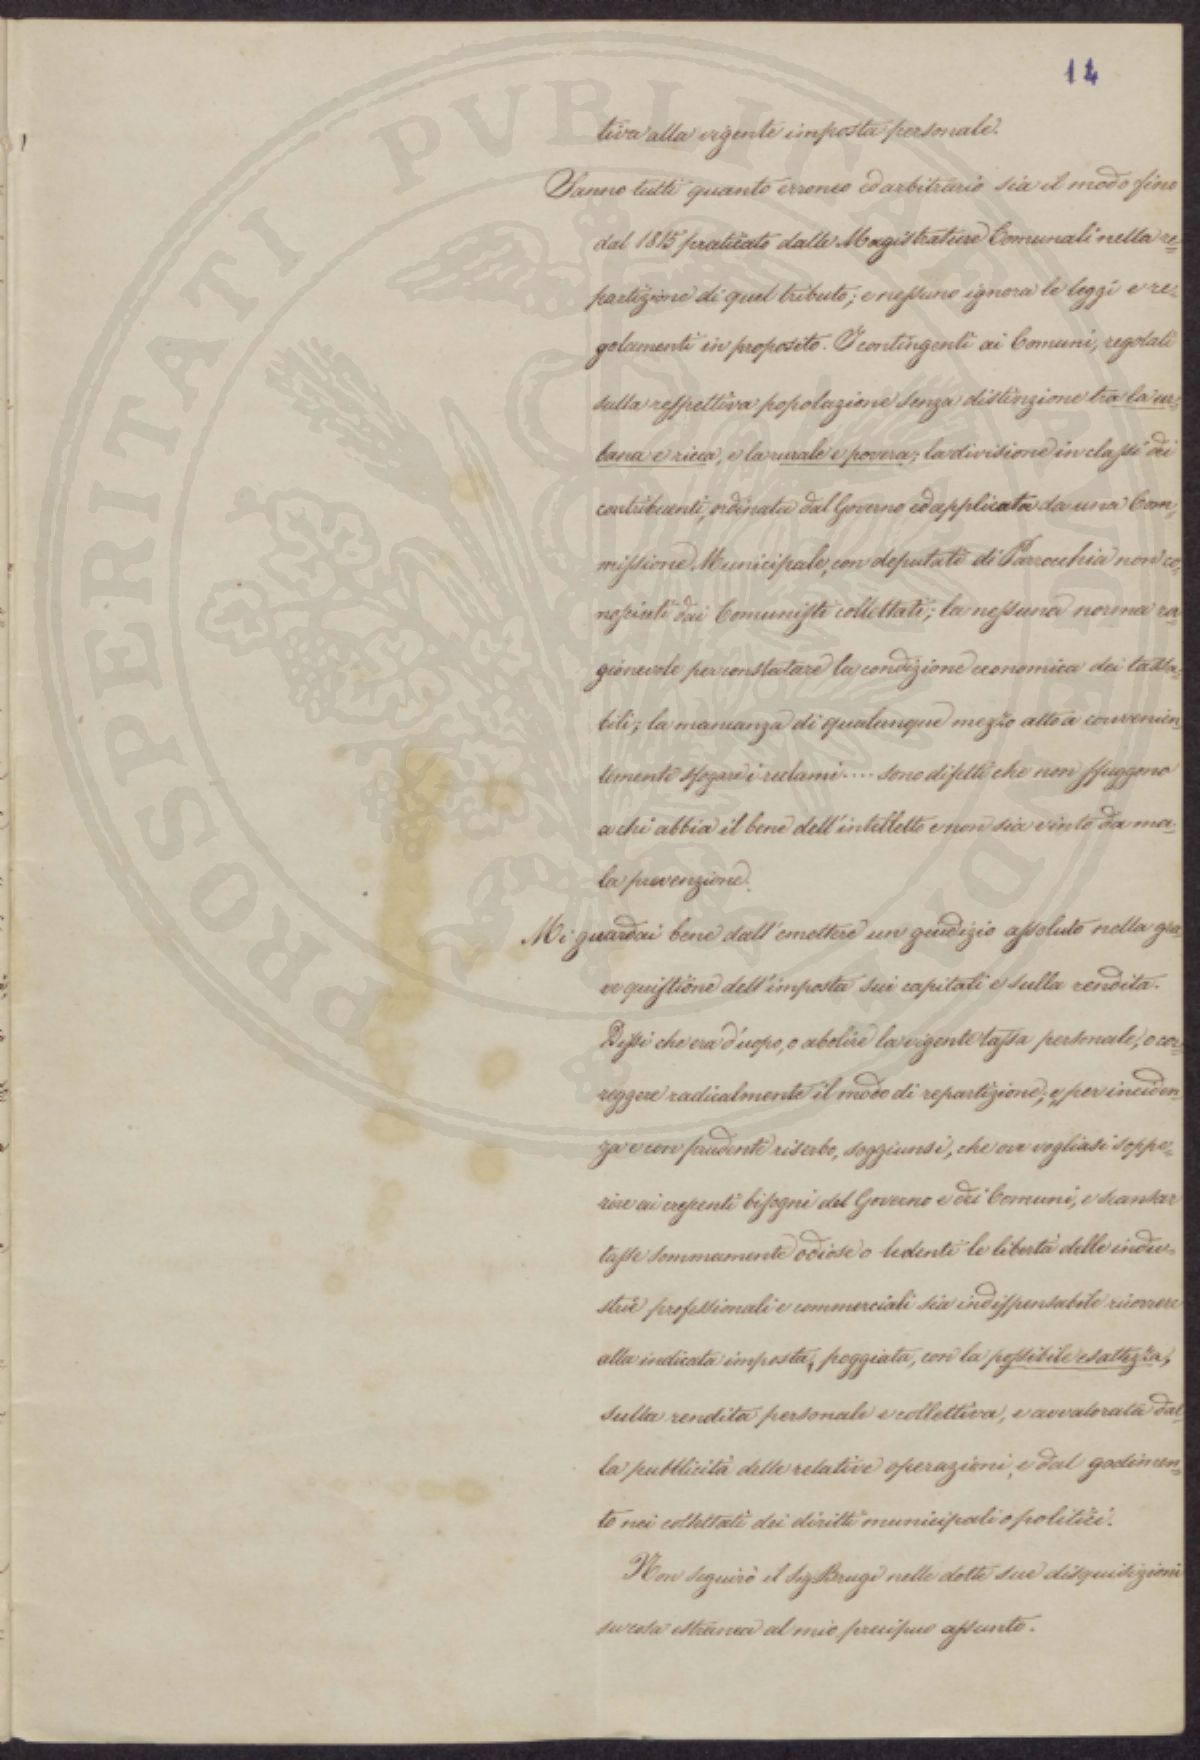 14
tiva alla vigente imposta personale.
Sanno tutti quanto erroneo ed arbitrario sia il modo fino
dal 1815 praticato dalle Magistrature Comunali nella re=
partizione di quel tributo; e nessuno ignora le leggi e re=
golamenti in proposito. I contingenti ai Comuni, regolati
sulla respettiva popolazione senza distinzione tra la ur=
bana e ricca, e la rurale e povera; la divisione in classi dei
contribuenti, ordinata dal Governo ed applicata da una Com=
missione Municipale, con deputati di Parrocchia non co=
nosciuti dai Comunisti collettati; la nessuna norma ra=
gionevole per constatare la condizione economica dei tassa=
bili; la mancanza di qualunque mezzo atto a convenien=
temente sfogare i reclami.... sono difetti che non sfuggono
a chi abbia il bene dell'intelletto e non sia vinto da ma=
la prevenzione.
Mi guardai bene dall'emettere un giudizio assoluto nella gra=
ve quistione dell'imposta sui capitali e sulla rendita.
Dissi che era d'uopo, o abolire la vigente tassa personale, o cor=
reggere radicalmente il modo di repartizione; e, per inciden=
za e con prudente riserbo, soggiunsi, che ove vogliasi soppe=
rire ai crescenti bisogni del Governo e dei Comuni, e scansar
tasse sommamente odiose o ledenti le libertà delle indu=
strie professionali e commerciali sia indispensabile ricorrere
alla indicata imposta, poggiata, con la possibile esattezza,
sulla rendita personale e collettiva, e avvalorata dal=
la pubblicità delle relative operazioni, e dal godimen=
to nei collettati dei diritti municipali o politici.
Non seguirò il Sig Brugi nelle dotte sue disquisizioni
su cosa estranea al mio precipuo assunto.
PROSPERITATI PUBLICAE